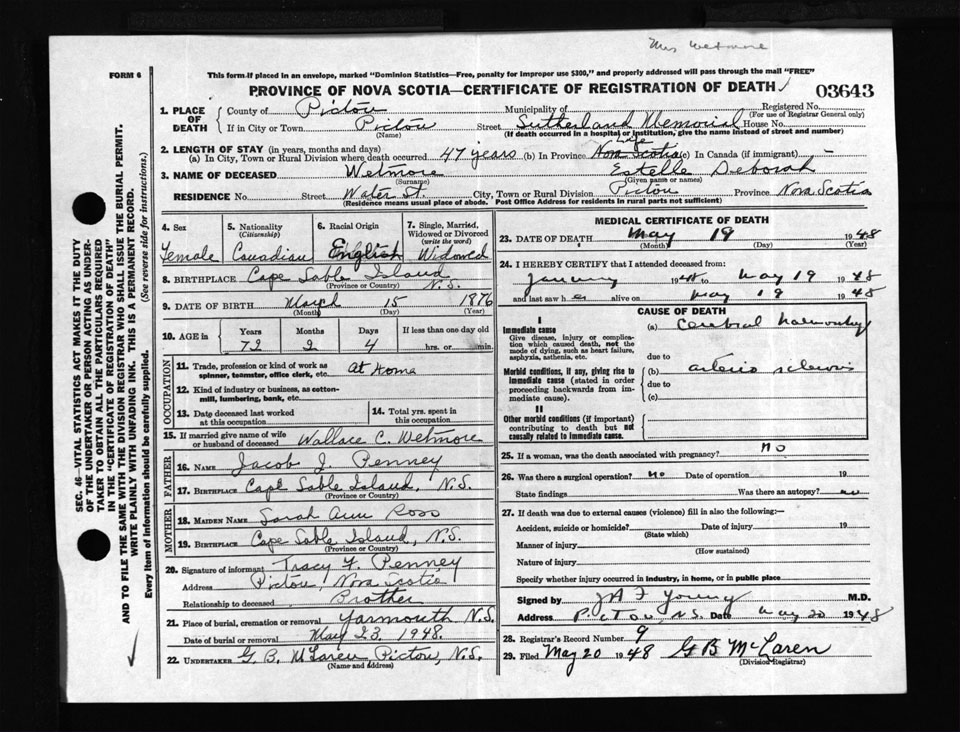 Mrs Wetmore
FORM 6
This form if placed in an envelope, marked "Dominion Statistics—Free, penalty for improper use $300," and properly addressed will pass through the mail "FREE"
PROVINCE OF NOVA SCOTIA—CERTIFICATE OF REGISTRATION OF DEATH
03643
1. PLACE OF DEATH
County of Pictou Municipality of Registered No.
(For use of Registrar General only)
If in City or Town Pictou Street Sutherland Memorial House No.
(Name) (If death occurred in a hospital or institution, give the name instead of street and number)
2. LENGTH OF STAY (in years, months and days)
(a) In City, Town or Rural Division where death occurred 47 years (b) In Province Life Nova Scotia (c) In Canada (if immigrant) —
3. NAME OF DECEASED Wetmore Estelle Deborah
(Surname) (Given name or names)
RESIDENCE No. Street Water St. City, Town or Rural Division Pictou Province Nova Scotia
(Residence means usual place of abode. Post Office Address for residents in rural parts not sufficient)
4. Sex Female
5. Nationality (Citizenship) Canadian
6. Racial Origin English
7. Single, Married, Widowed or Divorced (write the word) Widowed
8. BIRTHPLACE Cape Sable Island N.S.
(Province or Country)
9. DATE OF BIRTH March 15 1876
(Month) (Day) (Year)
10. AGE in Years Months Days If less than one day old
72 2 4 hrs. or min.
OCCUPATION
11. Trade, profession or kind of work as spinner, teamster, office clerk, etc. At Home
12. Kind of industry or business, as cotton-mill, lumbering, bank, etc.
13. Date deceased last worked at this occupation
14. Total yrs. spent in this occupation
15. If married give name of wife or husband of deceased Wallace C. Wetmore
FATHER
16. NAME Jacob J. Penney
17. BIRTHPLACE Cape Sable Island, N.S.
(Province or Country)
MOTHER
18. MAIDEN NAME Sarah Ann Ross
19. BIRTHPLACE Cape Sable Island, N.S.
(Province or Country)
20. Signature of informant Tracy F. Penney
Address Pictou, Nova Scotia
Relationship to deceased Brother
21. Place of burial, cremation or removal Yarmouth N.S.
Date of burial or removal May 23. 1948.
22. UNDERTAKER G. B. McLaren Pictou, N.S.
(Name and address)
MEDICAL CERTIFICATE OF DEATH
23. DATE OF DEATH May 19 1948
(Month) (Day) (Year)
24. I HEREBY CERTIFY that I attended deceased from:
January 1948 to May 19 1948
and last saw her alive on May 19 1948
CAUSE OF DEATH
I
Immediate cause
Give disease, injury or complication which caused death, not the mode of dying, such as heart failure, asphyxia, asthenia, etc.
(a) Cerebral haemorrhage
due to
Morbid conditions, if any, giving rise to immediate cause (stated in order proceeding backwards from immediate cause).
(b) arterio sclerosis
due to
(c)
II
Other morbid conditions (if important) contributing to death but not causally related to immediate cause.
25. If a woman, was the death associated with pregnancy? no
26. Was there a surgical operation? no Date of operation 19
State findings Was there an autopsy? no
27. If death was due to external causes (violence) fill in also the following:—
Accident, suicide or homicide? Date of injury 19
(State which)
Manner of injury
(How sustained)
Nature of injury
Specify whether injury occurred in industry, in home, or in public place
Signed by J A F Young M.D.
Address Pictou, N.S. Date May 20 1948
28. Registrar's Record Number 9
29. Filed May 20 1948 G B McLaren
(Division Registrar)
SEC. 46—VITAL STATISTICS ACT MAKES IT THE DUTY
OF THE UNDERTAKER OR PERSON ACTING AS UNDER-
TAKER TO OBTAIN ALL THE PARTICULARS REQUIRED
IN THE "CERTIFICATE OF REGISTRATION OF DEATH"
AND TO FILE THE SAME WITH THE DIVISION REGISTRAR WHO SHALL ISSUE THE BURIAL PERMIT.
WRITE PLAINLY WITH UNFADING INK. THIS IS A PERMANENT RECORD.
Every item of information should be carefully supplied. (See reverse side for instructions.)